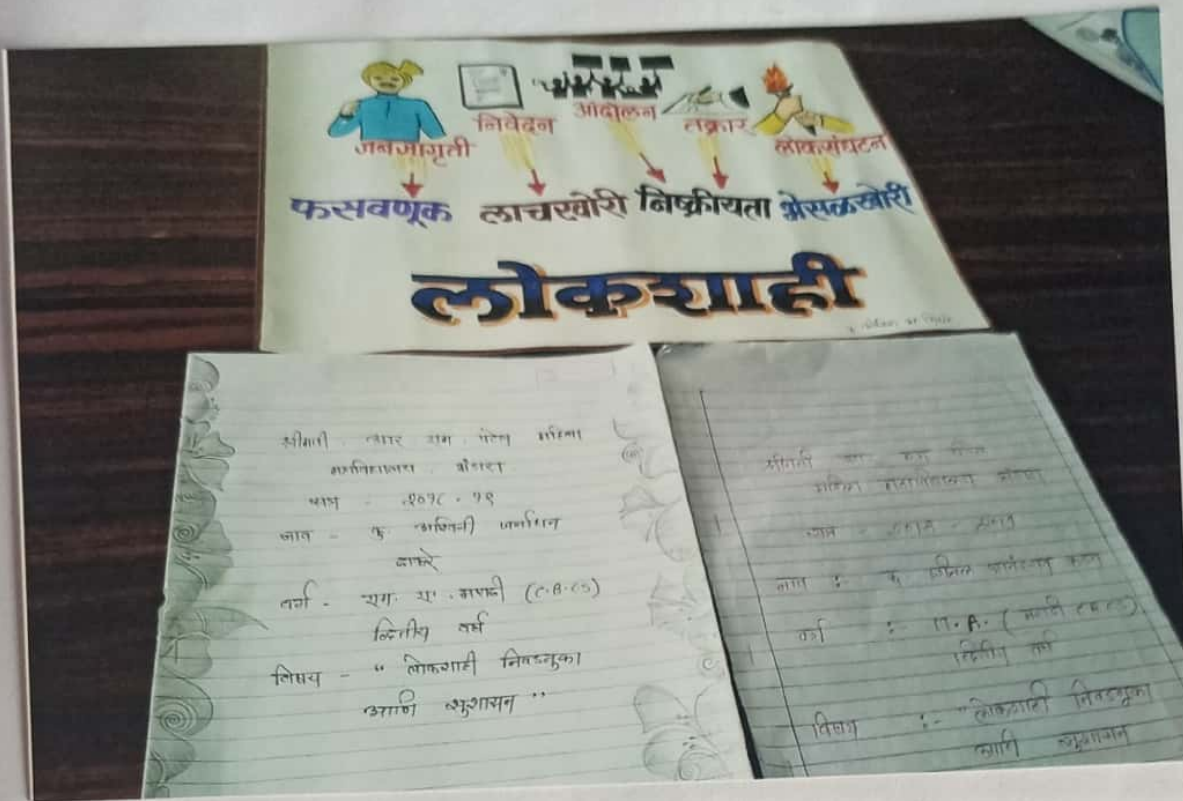 जनजागृती
निवेदन
आंदोलन
तक्रार
लोकसंघटन
फसवणूक लाचखोरी निष्क्रीयता भेसळखोरी
लोकशाही
श्रीमती पटेल महिला
महाविद्यालय भंडारा
सत्र - २०१८ - १९
नाव - कु. अश्विनी
ठाकरे
वर्ग - एम. ए. मराठी (C.B.CS)
द्वितीय वर्ष
विषय - " लोकशाही निवडणुका
आणि सुशासन "
श्रीमती पटेल
महिला महाविद्यालय भंडारा
सत्र
नाव : कु
वर्ग : M.A. (मराठी CBCS)
द्वितीय वर्ष
विषय :- "लोकशाही निवडणुका
आणि सुशासन